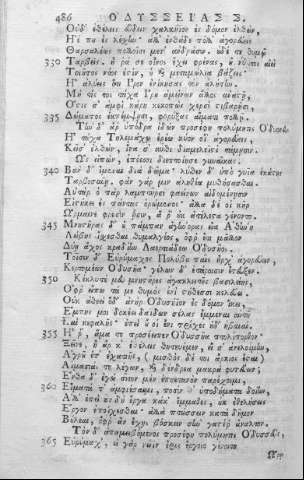 486 ΟΔΥΣΣΕΙΑΣ Σ.
Οὐδ' ἐθέλεις εὕδειν χαλκήϊον ἐς δόμον ἐλθών,
Ἠέ που ἐς λέσχην· ἀλλ' ἐνθάδε πόλλ' ἀγορεύεις
330 Θαρσαλέως πολλοῖσι μετ' ἀνδράσιν, οὐδέ τι θυμῷ
Ταρβεῖς· ἦ ῥά σε οἶνος ἔχει φρένας, ἤ νύ τοι αἰεὶ
Τοιοῦτος νόος ἐστὶν, ὃ καὶ μεταμώλια βάζεις.
Ἦ ἀλύεις ὅτι Ἶρον ἐνίκησας τὸν ἀλήτην;
Μή τίς τοι τάχα Ἴρου ἀμείνων ἄλλος ἀναστῇ,
Ὅστις σ' ἀμφὶ κάρη κεκοπὼς χερσὶ στιβαρῇσι,
335 Δώματος ἐκπέμψῃσι, φορύξας αἵματι πολλῷ.
Τὴν δ' ἄρ' ὑπόδρα ἰδὼν προσέφη πολύμητις Ὀδυσσεύς·
Ἦ τάχα Τηλεμάχῳ ἐρέω κύον οἷ' ἀγορεύεις,
Κεῖσ' ἐλθὼν, ἵνα σ' αὖθι διαμελεϊστὶ τάμῃσιν.
Ὣς εἰπὼν, ἐπέεσσι διεπτοίησε γυναῖκας.
340 Βὰν δ' ἴμεναι διὰ δῶμα· λύθεν δ' ὑπὸ γυῖα ἑκάστης
Ταρβοσύνῃ· φὰν γάρ μιν ἀληθέα μυθήσασθαι.
Αὐτὰρ ὁ πὰρ λαμπτῆρσι φαείνων αἰθομένοισιν
Εἱστήκει ἐς πάντας ὁρώμενος· ἄλλα δέ οἱ κῆρ
Ὥρμαινε φρεσὶν ᾗσιν, ἅ ῥ' οὐκ ἀτέλεστα γένοντο.
345 Μνηστῆρας δ' οὐ πάμπαν ἀγήνορας εἴα Ἀθήνη
Λώβης ἴσχεσθαι θυμαλγέος, ὄφρ' ἔτι μᾶλλον
Δύη ἄχος κραδίην Λαερτιάδεω Ὀδυσῆος.
Τοῖσιν δ' Εὐρύμαχος Πολύβου παῖς ἦρχ' ἀγορεύειν,
Κερτομέων Ὀδυσῆα· γέλων δ' ἑτάροισιν ἔτευξεν.
350 Κέκλυτέ μευ μνηστῆρες ἀγακλειτῆς βασιλείης,
Ὄφρ' εἴπω τά με θυμὸς ἐνὶ στήθεσσι κελεύει.
Οὐκ ἀθεεὶ ὅδ' ἀνὴρ Ὀδυσήϊον ἐς δόμον ἵκει,
Ἔμπης μοι δοκέει δαΐδων σέλας ἔμμεναι αὐτοῦ
Καὶ κεφαλῆς· ἐπεὶ οὔ οἱ ἔνι τρίχες οὐδ' ἠβαιαί.
355 Ἦ ῥ', ἅμα τε προσέειπεν Ὀδυσσῆα πτολίπορθον·
Ξεῖν', ἦ ἄρ κ' ἐθέλοις θητευέμεν, εἴ σ' ἀνελοίμην
Ἀγροῦ ἐπ' ἐσχατιῆς, (μισθὸς δέ τοι ἄρκιος ἔσται)
Αἱμασιάς τε λέγων, καὶ δένδρεα μακρὰ φυτεύων;
Ἔνθα δ' ἐγὼ σῖτον μὲν ἐπηετανὸν παρέχοιμι,
360 Εἵματα τ' ἀμφιέσαιμι, ποσίν θ' ὑποδήματα δοίην,
Ἀλλ' ἐπεὶ οὖν δὴ ἔργα κάκ' ἔμμαθες, οὐκ ἐθελήσεις
Ἔργον ἐποίχεσθαι· ἀλλὰ πτώσσειν κατὰ δῆμον
Βούλεαι, ὄφρ' ἂν ἔχῃς βόσκειν σὴν γαστέρ' ἄναλτον.
Τὸν δ' ἀπαμειβόμενος προσέφη πολύμητις Ὀδυσσεύς,
365 Εὐρύμαχ', εἰ γὰρ νῶϊν ἔρις ἔργοιο γένοιτο